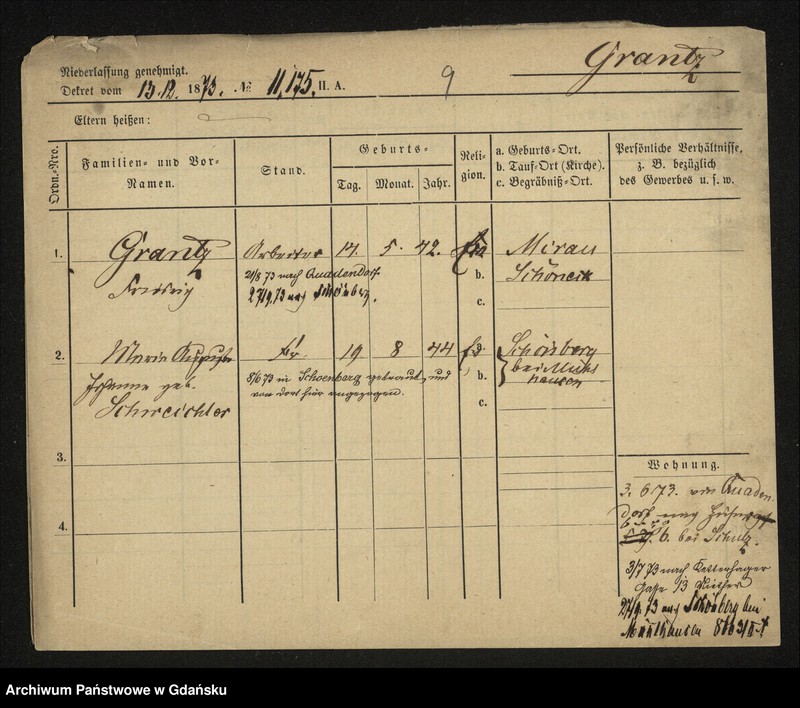 Grantz
Niederlassung genehmigt.
Dekret vom 13.12. 1873. № 11,175. II. A.
9
Eltern heißen:
Ordn.-Nro.
Familien- und Vor-
Namen.
Stand.
Geburts-
Tag. Monat. Jahr.
Reli-
gion.
a. Geburts-Ort.
b. Tauf-Ort (Kirche).
c. Begräbniß-Ort.
Persönliche Verhältnisse,
z. B. bezüglich
des Gewerbes u. s. w.
1. Grantz Arbeiter 14. 5. 42. a. Mirau
21/8 73 nach Quadendorf b. Schöneck
27/9. 73 nach Schönberg. c.
2. Maria Auguste Fr. 19 8 44 a. Schönberg
Johanne geb. 8/6 73 in Schoenberg getraut, und b. bei
von dort hier angezogen. hausen
Schweichler c.
3.
4.
Wohnung.
3. 6 73. von Quaden
dorf nach
6. bei Schulz.
3/7 73 nach Ketterhager
Gasse 13
27/9. 73 nach Schönberg bei